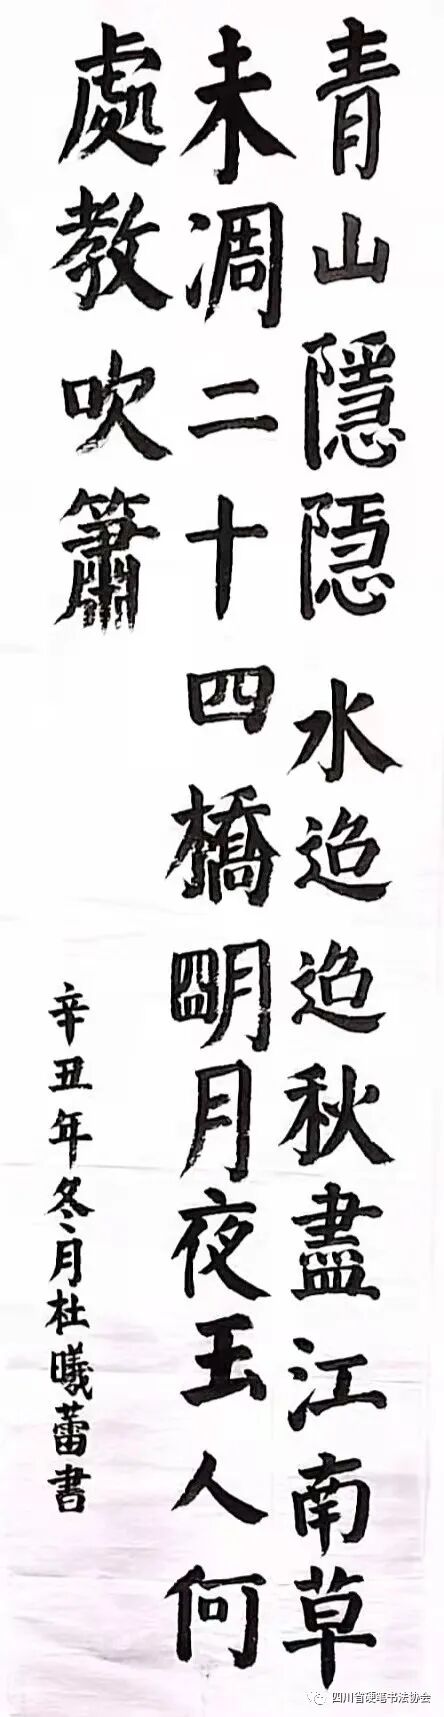 青山隱隱水迢迢秋盡江南草
未凋二十四橋明月夜玉人何
處教吹簫
辛丑年冬月杜曦蕾書
四川省硬笔书法协会